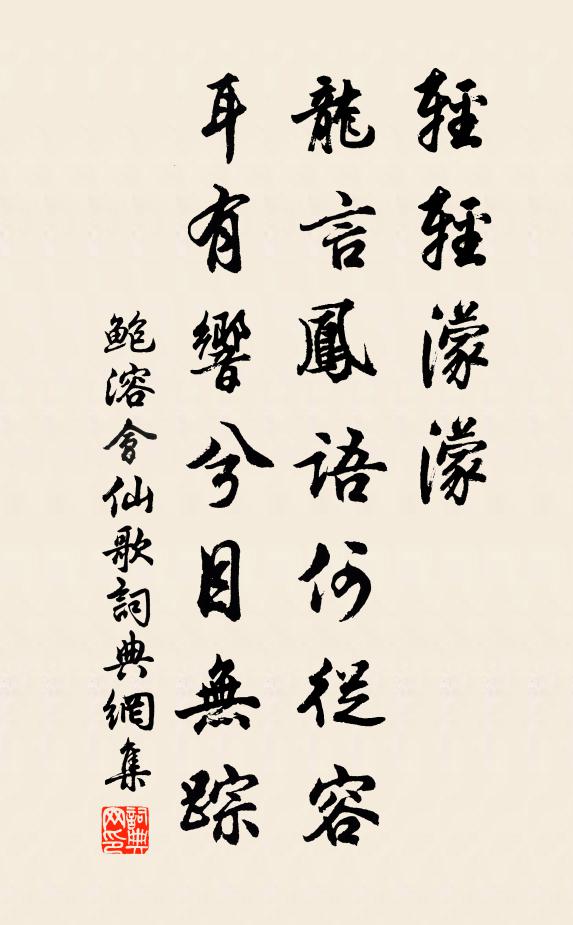 輕輕濛濛
龍言鳳語何從容
耳有響兮目無踪
鮑溶會仙歌詞典網集
詞典
网印